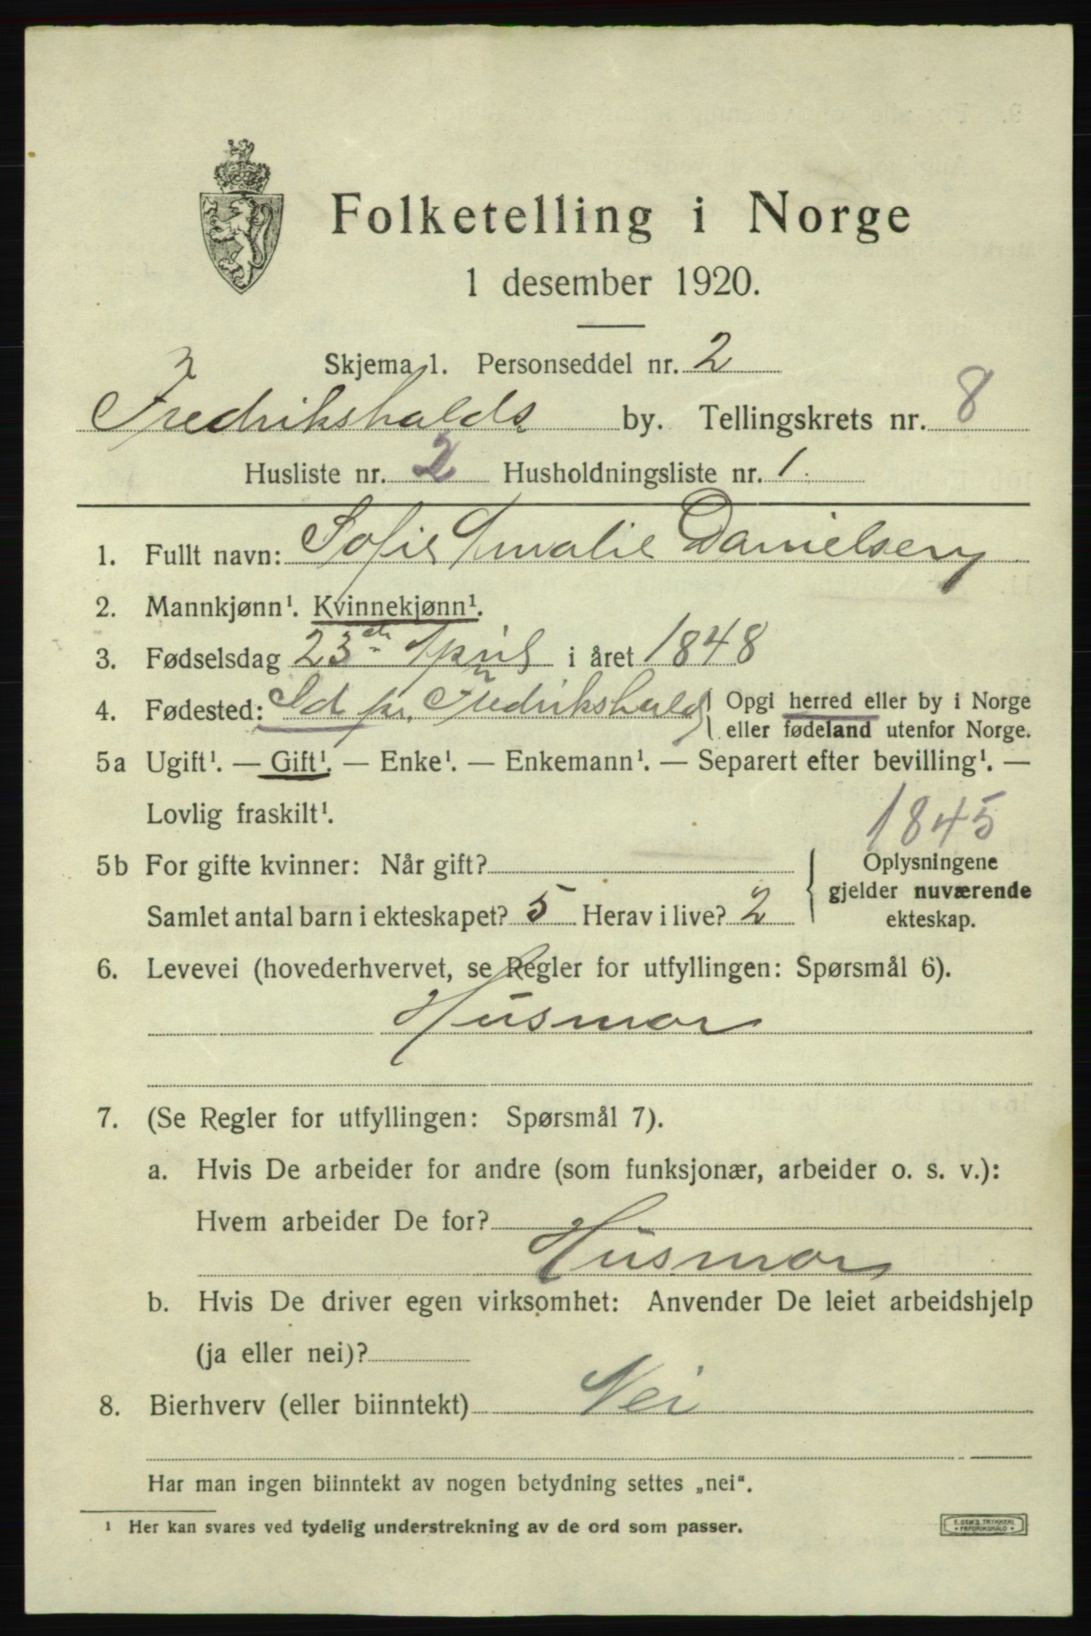 Folketelling i Norge
1 desember 1920.
Skjema 1. Personseddel nr. 2
Fredrikshalds by. Tellingskrets nr. 8
Husliste nr. 2 Husholdningsliste nr. 1
1. Fullt navn: Sofie Amalie Danielsen
2. Mannkjønn¹. Kvinnekjønn¹.
3. Fødselsdag 23de April i året 1848
4. Fødested: Id pr. Fredrikshald Opgi herred eller by i Norge
eller fødeland utenfor Norge.
5a Ugift¹. — Gift¹. — Enke¹. — Enkemann¹. — Separert efter bevilling¹. —
Lovlig fraskilt¹.
1845
5b For gifte kvinner: Når gift?
Oplysningene
gjelder nuværende
ekteskap.
Samlet antal barn i ekteskapet? 5 Herav i live? 2
6. Levevei (hovederhvervet, se Regler for utfyllingen: Spørsmål 6).
Husmor
7. (Se Regler for utfyllingen: Spørsmål 7).
a. Hvis De arbeider for andre (som funksjonær, arbeider o. s. v.):
Hvem arbeider De for?
Husmor
b. Hvis De driver egen virksomhet: Anvender De leiet arbeidshjelp
(ja eller nei)?
8. Bierhverv (eller biinntekt) Nei
Har man ingen biinntekt av nogen betydning settes „nei“.
¹ Her kan svares ved tydelig understrekning av de ord som passer.